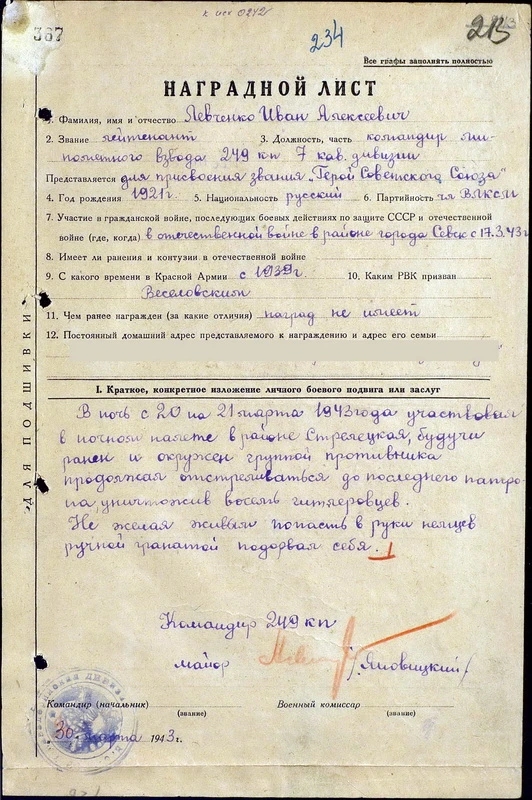 к исх 0242
367
234
213
Все графы заполнять полностью
НАГРАДНОЙ ЛИСТ
1. Фамилия, имя и отчество Левченко Иван Алексеевич
2. Звание лейтенант 3. Должность, часть командир ми-
нометного взвода 249 кп 7 кав. дивизии
Представляется для присвоения звания „Герой Советского Союза"
4. Год рождения 1921 г. 5. Национальность русский 6. Партийность чл ВЛКСМ
7. Участие в гражданской войне, последующих боевых действиях по защите СССР и отечественной
войне (где, когда) в отечественной войне в районе города Севск с 17.3.43 г
8. Имеет ли ранения и контузии в отечественной войне
9. С какого времени в Красной Армии с 1939 г. 10. Каким РВК призван
Веселовским
11. Чем ранее награжден (за какие отличия) наград не имеет
12. Постоянный домашний адрес представляемого к награждению и адрес его семьи
I. Краткое, конкретное изложение личного боевого подвига или заслуг
В ночь с 20 на 21 марта 1943 года участвовал
в ночном налете в районе Стрелецкая, будучи
ранен и окружен группой противника
продолжал отстреливаться до последнего патро-
на, уничтожив восемь гитлеровцев.
Не желая живым попасть в руки немцев
ручной гранатой подорвал себя.
Командир 249 кп
майор /Яновицкий/
Командир (начальник) Военный комиссар
(звание) (звание)
30 марта 1943 г.
ДЛЯ ПОДШИВКИ